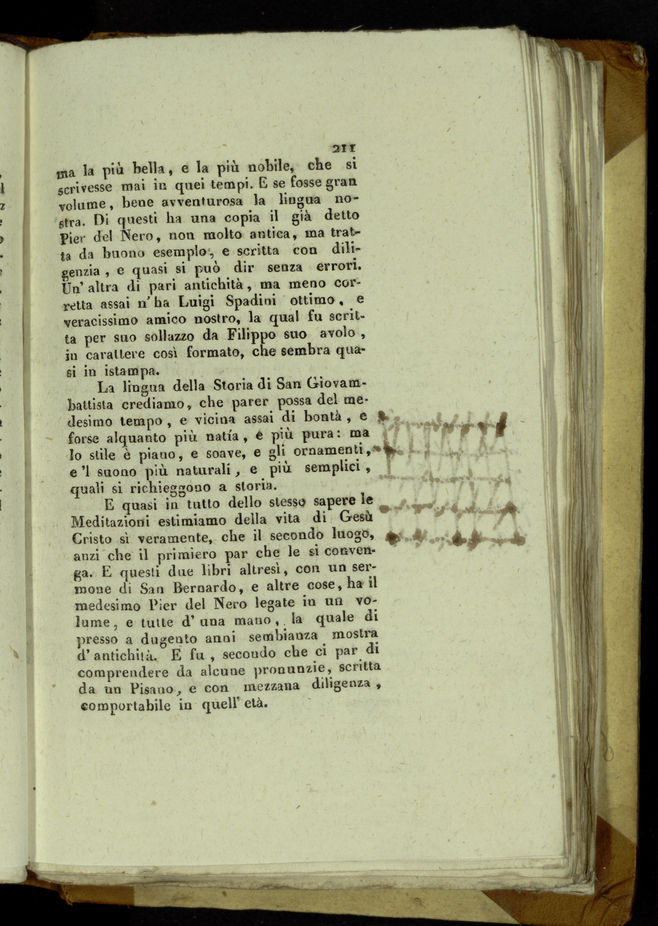 211
ma la più bella, e la più nobile, che si
scrivesse mai in quei tempi. E se fosse gran
volume, bene avventurosa la lingua no-
stra. Di questi ha una copia il già detto
Pier del Nero, non molto antica, ma trat-
ta da buono esemplo, e scritta con dili-
genzia, e quasi si può dir senza errori.
Un' altra di pari antichità, ma meno cor-
retta assai n' ha Luigi Spadini ottimo, e
veracissimo amico nostro, la qual fu scrit-
ta per suo sollazzo da Filippo suo avolo,
in carattere così formato, che sembra qua-
si in istampa.
La lingua della Storia di San Giovam-
battista crediamo, che parer possa del me-
desimo tempo, e vicina assai di bontà, e
forse alquanto più natía, e più pura: ma
lo stile è piano, e soave, e gli ornamenti,
e 'l suono più naturali, e più semplici,
quali si richieggono a storia.
E quasi in tutto dello stesso sapere le
Meditazioni estimiamo della vita di Gesù
Cristo sì veramente, che il secondo luogo,
anzi che il primiero par che le si conven-
ga. E questi due libri altresì, con un ser-
mone di San Bernardo, e altre cose, ha il
medesimo Pier del Nero legate in un vo-
lume, e tutte d' una mano, la quale di
presso a dugento anni sembianza mostra
d' antichità. E fu, secondo che ci par di
comprendere da alcune pronunzie, scritta
da un Pisano, e con mezzana diligenza,
comportabile in quell' età.